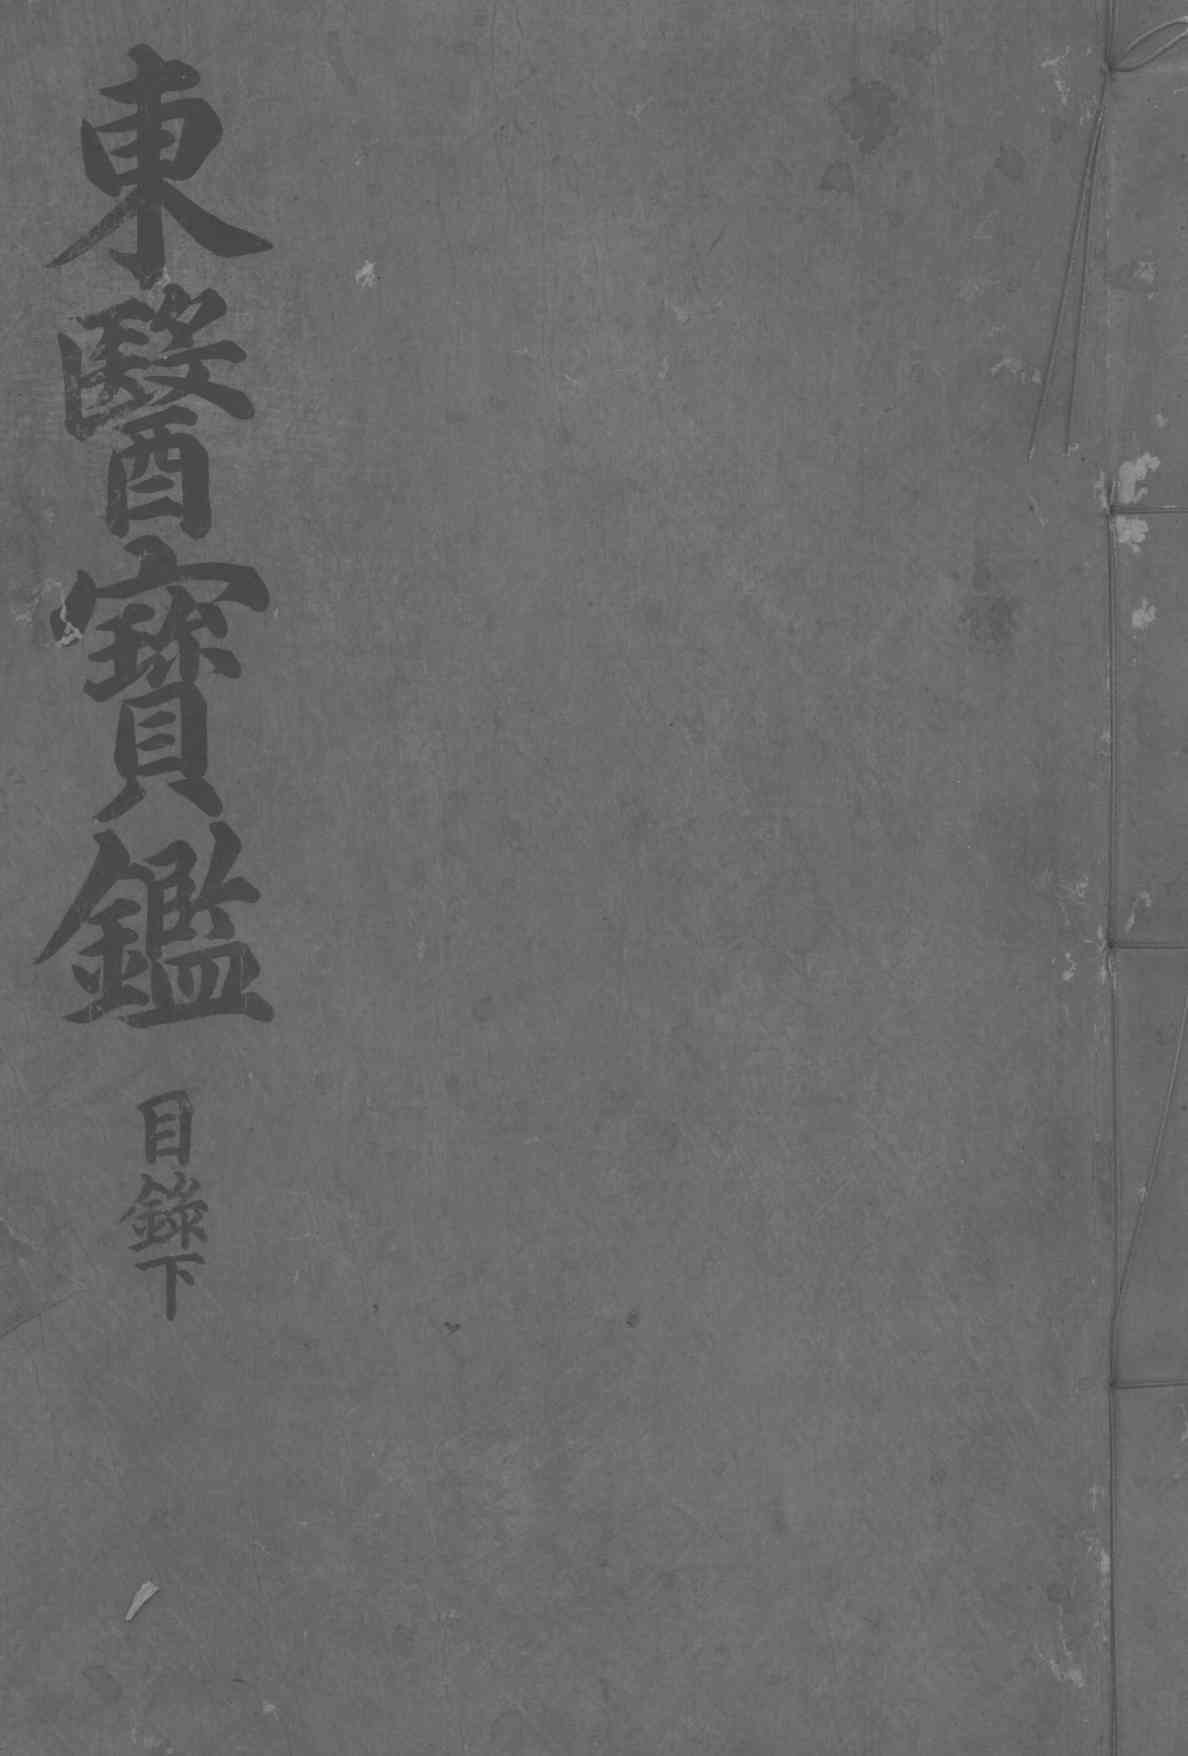 東醫寶鑑 目錄下